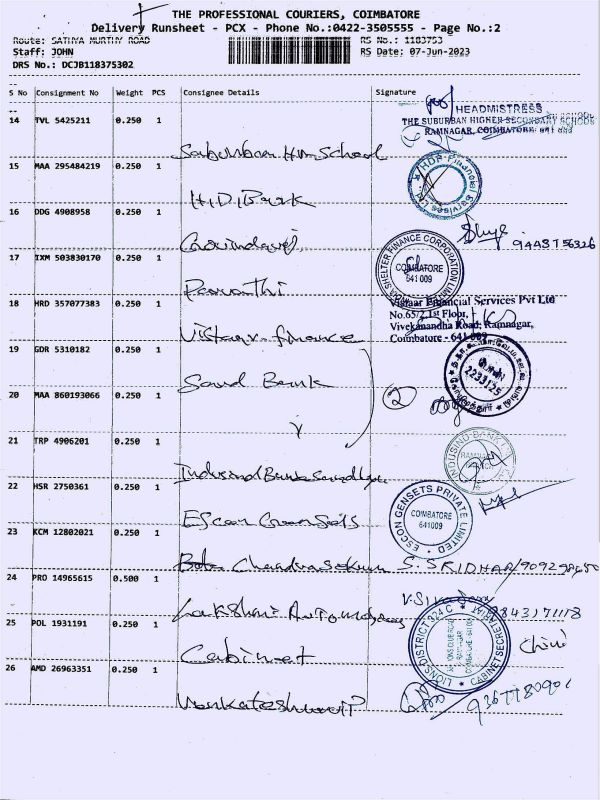 THE PROFESSIONAL COURIERS, COIMBATORE
Delivery Runsheet - PCX - Phone No.:0422-3505555 - Page No.:2
Route: SATHYA MURTHY ROAD RS No.: 1183753
Staff: JOHN RS Date: 07-Jun-2023
DRS No.: DCJB118375302
S No Consignment No Weight PCS Consignee Details Signature
HEADMISTRESS
14 TVL 5425211 0.250 1 THE SUBURBAN HIGHER SECONDARY SCHOOL
RAMNAGAR, COIMBATORE
School
15 MAA 295484219 0.250 1
HDB Financial Services Ltd
Bank
16 DDG 4908958 0.250 1
Govindaraj
SHELTER FINANCE CORPORATION LIMITED
17 IXM 503830170 0.250 1 COIMBATORE
641 009
Parvathi
18 HRD 357077383 0.250 1 Vistaar Financial Services Pvt Ltd
No.65/2,1st Floor,
Vivekanandha Road, Ramnagar,
Coimbatore - 641 009
Vistaar finance
19 GDR 5310182 0.250 1
Bank
2233125
20 MAA 860193066 0.250 1 2
21 TRP 4906201 0.250 1
INDUSIND BANK
Indusind Bank
22 HSR 2750361 0.250 1
ESCON GENSETS PRIVATE LIMITED
COIMBATORE
641009
Escon Gensets
23 KCM 12802021 0.250 1
Chandrasekaran S. SRIDHAR
24 PRO 14965615 0.500 1
Lakshmi Automobiles 9843171118
25 POL 1931191 0.250 1
LIONS DISTRICT 324 C CABINET SECRETARIAT
Cabinet
26 AMD 26963351 0.250 1